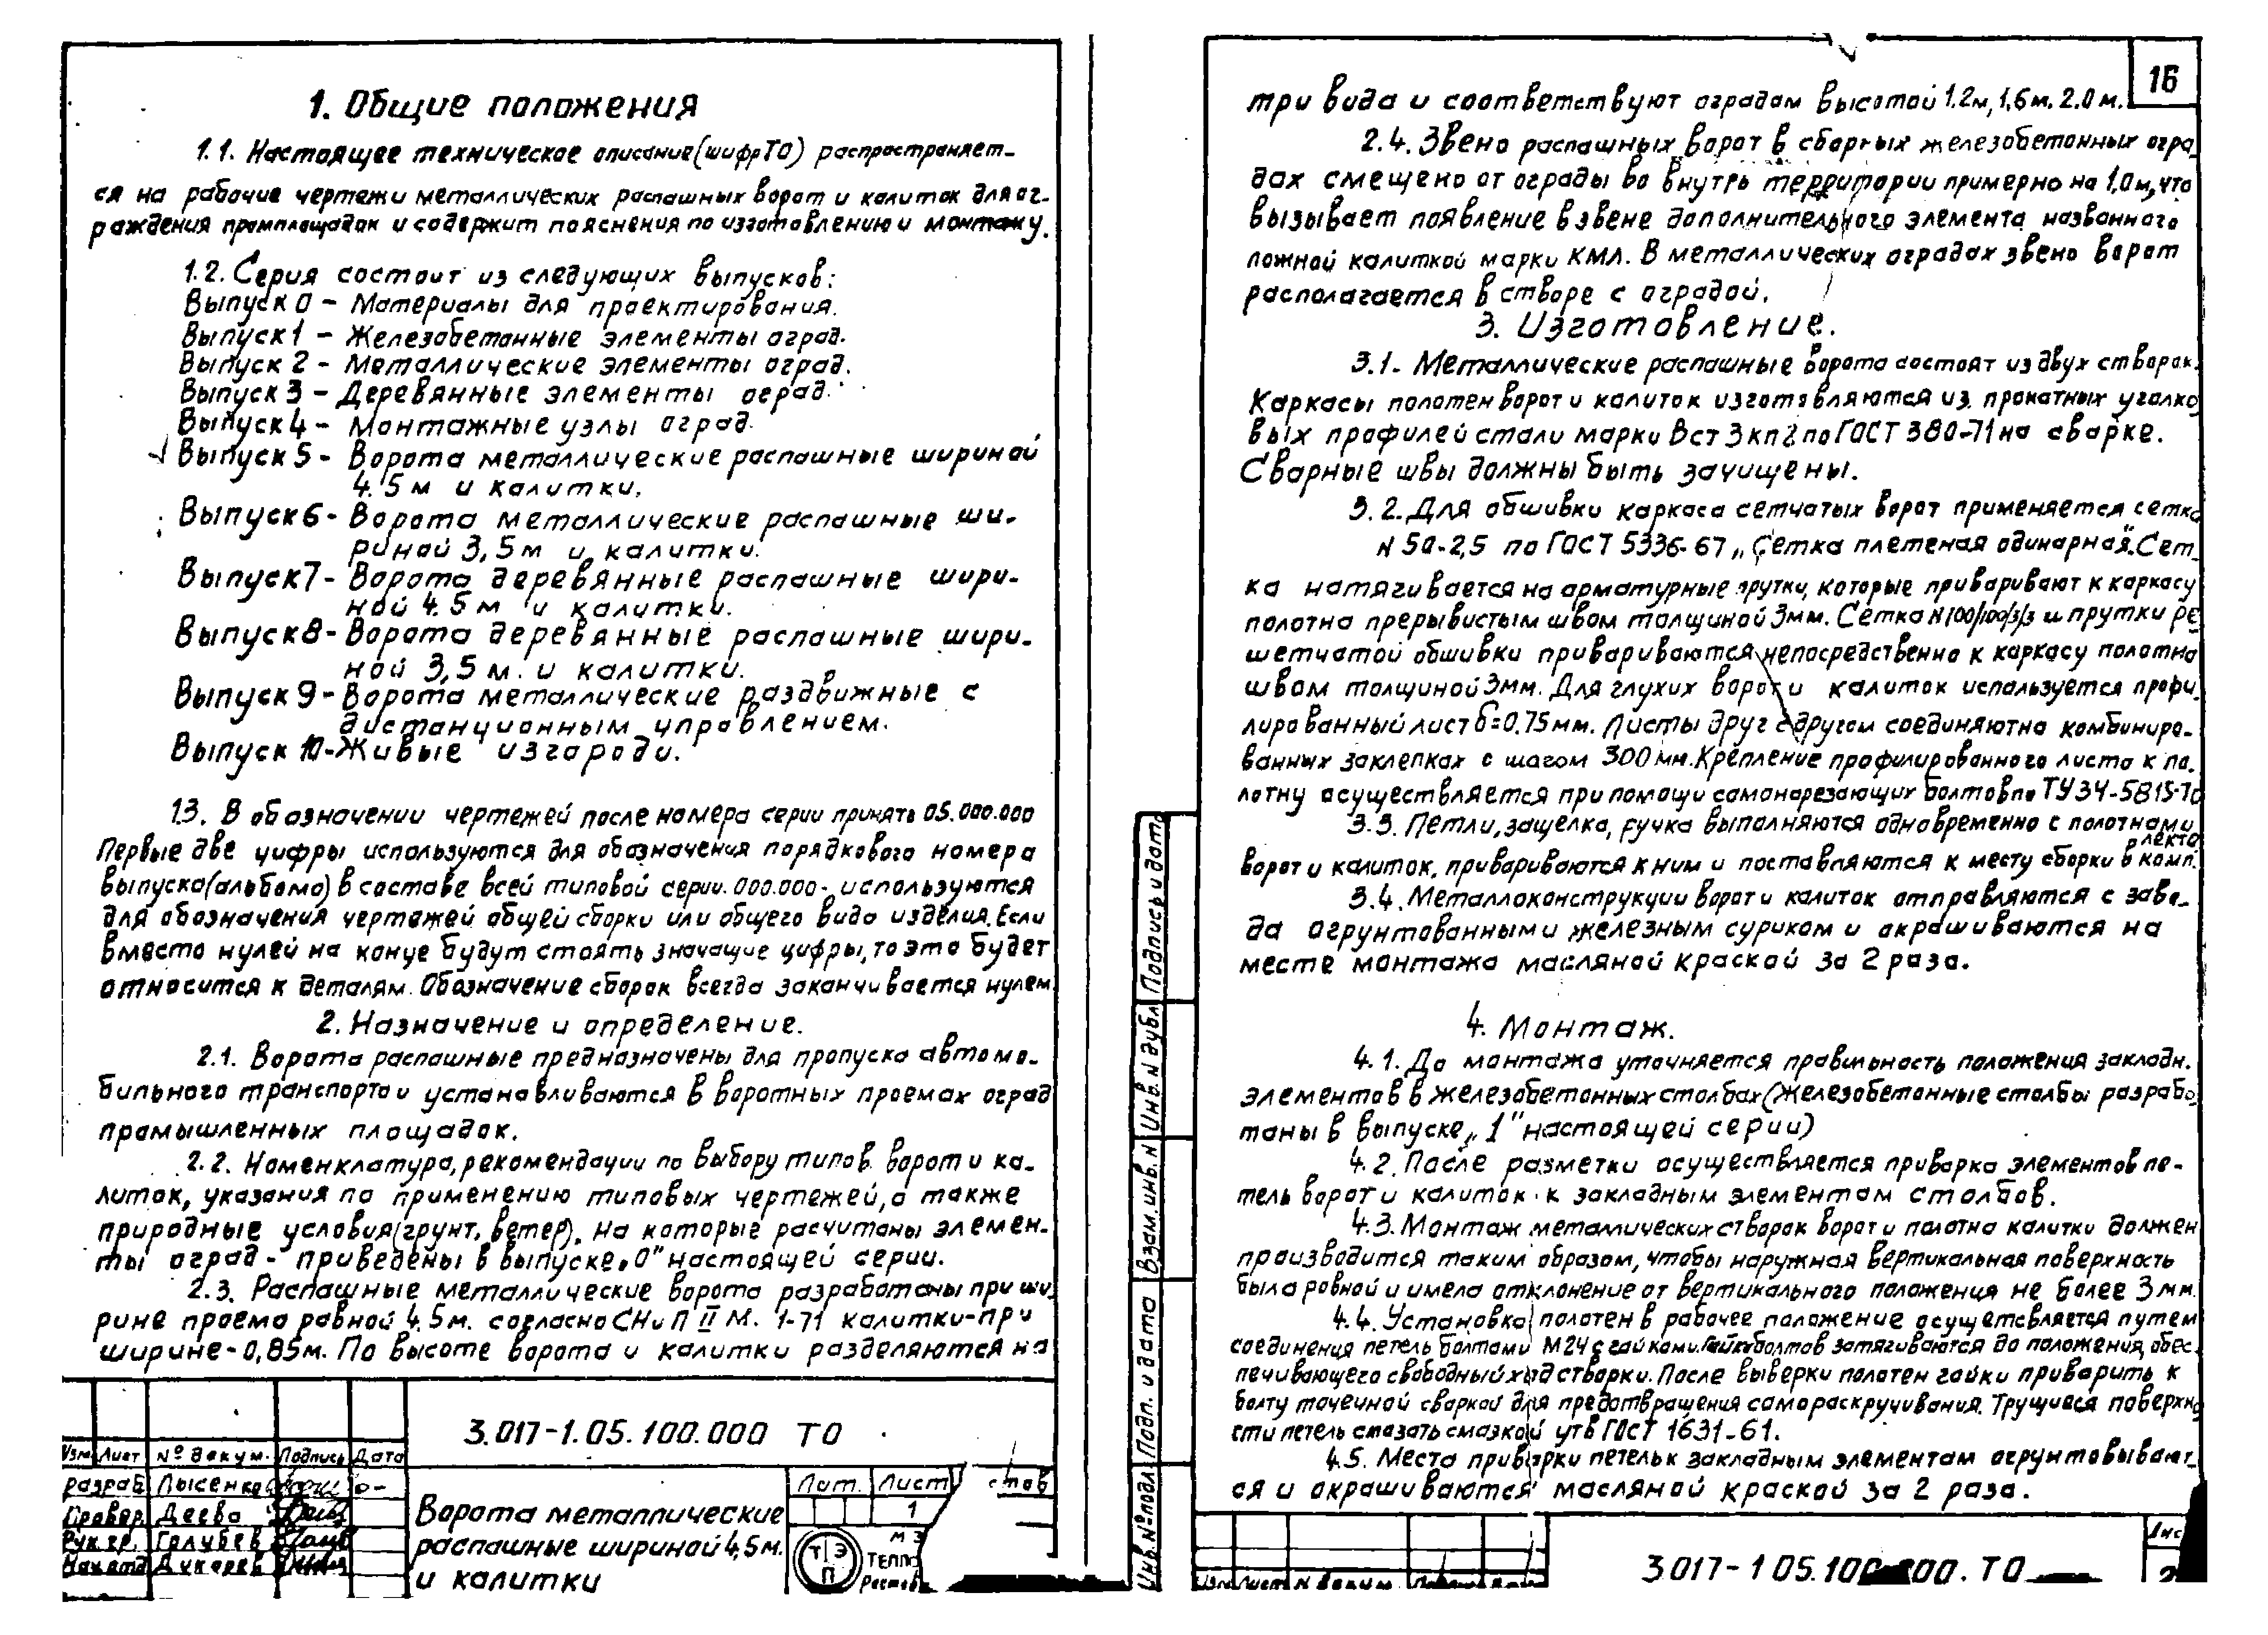 1. Общие положения
1.1. Настоящее техническое описание (шифр ТО) распространяет-
ся на рабочие чертежи металлических распашных ворот и калиток для ог-
раждения промплощадок и содержит пояснения по изготовлению и монтажу.
1.2. Серия состоит из следующих выпусков:
Выпуск 0 - Материалы для проектирования.
Выпуск 1 - Железобетонные элементы оград.
Выпуск 2 - Металлические элементы оград.
Выпуск 3 - Деревянные элементы оград.
Выпуск 4 - Монтажные узлы оград.
Выпуск 5 - Ворота металлические распашные шириной
4.5 м и калитки.
Выпуск 6 - Ворота металлические распашные ши-
риной 3,5 м и калитки.
Выпуск 7 - Ворота деревянные распашные шири-
ной 4.5 м и калитки.
Выпуск 8 - Ворота деревянные распашные шири-
ной 3,5 м. и калитки.
Выпуск 9 - Ворота металлические раздвижные с
дистанционным управлением.
Выпуск 10 - Живые изгороди.
1.3. В обозначении чертежей после номера серии принять 05.000.000
Первые две цифры используются для обозначения порядкового номера
выпуска (альбома) в составе всей типовой серии. 000.000 - используются
для обозначения чертежей общей сборки или общего вида изделия. Если
вместо нулей на конце будут стоять значащие цифры, то это будет
относится к деталям. Обозначение сборок всегда заканчивается нулем
2. Назначение и определение.
2.1. Ворота распашные предназначены для пропуска автомо-
бильного транспорта и устанавливаются в воротных проемах оград
промышленных площадок.
2.2. Номенклатура, рекомендации по выбору типов ворот и ка-
литок, указания по применению типовых чертежей, а также
природные условия (грунт, ветер), на которые расчитаны элемен-
ты оград - приведены в выпуске „0" настоящей серии.
2.3. Распашные металлические ворота разработаны при ши-
рине проема равной 4.5 м. согласно СНиП II М. 1-71 калитки - при
ширине - 0,85 м. По высоте ворота и калитки разделяются на
3.017-1.05.100.000 ТО
Изм Лист № докум. Подпись Дата
разраб Лысенко
Провер. Деева
Рук.гр. Голубев
Нач.отд Дикарев
Ворота металлические
распашные шириной 4,5 м.
и калитки
Лит. Лист
1
ТЭП
16
три вида и соответствуют оградам высотой 1.2 м, 1,6 м. 2.0 м.
2.4. Звено распашных ворот в сборных железобетонных огра
дах смещено от ограды во внутрь территории примерно на 1,0 м, что
вызывает появление в звене дополнительного элемента названного
ложной калиткой марки КМЛ. В металлических оградах звено ворот
располагается в створе с оградой.
3. Изготовление.
3.1. Металлические распашные ворота состоят из двух створок.
Каркасы полотен ворот и калиток изготовляются из прокатных уголко
вых профилей стали марки Вст 3 кп 2 по ГОСТ 380-71 на сварке.
Сварные швы должны быть зачищены.
3.2. Для обшивки каркаса сетчатых ворот применяется сетка
N 50-2,5 по ГОСТ 5336-67 „Сетка плетеная одинарная". Сет-
ка натягивается на арматурные прутки, которые приваривают к каркасу
полотна прерывистым швом толщиной 3мм. Сетка N 100/100/3/3 и прутки ре
шетчатой обшивки привариваются непосредственно к каркасу полотна
швом толщиной 3мм. Для глухих ворот и калиток используется профи-
лированный лист б=0.75 мм. Листы друг с другом соединяют на комбиниро-
ванных заклепках с шагом 300 мм. Крепление профилированного листа к по-
лотну осуществляется при помощи самонарезающих болтов по ТУ 34-5815-70
3.3. Петли, защелка, ручка выполняются одновременно с полотнами
ворот и калиток, привариваются к ним и поставляются к месту сборки в комп-
лекте
3.4. Металлоконструкции ворот и калиток отправляются с заво-
да огрунтованными железным суриком и окрашиваются на
месте монтажа масляной краской за 2 раза.
4. Монтаж.
4.1. До монтажа уточняется правильность положения закладн.
элементов в железобетонных столбах (железобетонные столбы разрабо
таны в выпуске „1" настоящей серии)
4.2. После разметки осуществляется приварка элементов пе-
тель ворот и калиток к закладным элементам столбов.
4.3. Монтаж металлических створок ворот и полотна калитки должен
производится таким образом, чтобы наружная вертикальная поверхность
была ровной и имела отклонение от вертикального положения не более 3 мм.
4.4. Установка полотен в рабочее положение осуществляется путем
соединения петель болтами М24 с гайками. Гайки болтов затягиваются до положения, обес-
печивающего свободный ход створки. После выверки полотен гайки приварить к
болту точечной сваркой для предотвращения самораскручивания. Трущиеся поверхно
сти петель смазать смазкой утв ГОСТ 1631-61.
4.5. Места приварки петель к закладным элементам огрунтовывают-
ся и окрашиваются масляной краской за 2 раза.
Инв.№подл. Подп. и дата Взам.инв.N Инв.N дубл Подпись и дата
Изм Лист N докум.
3.017-1 05.100.000. ТО
Лис
2